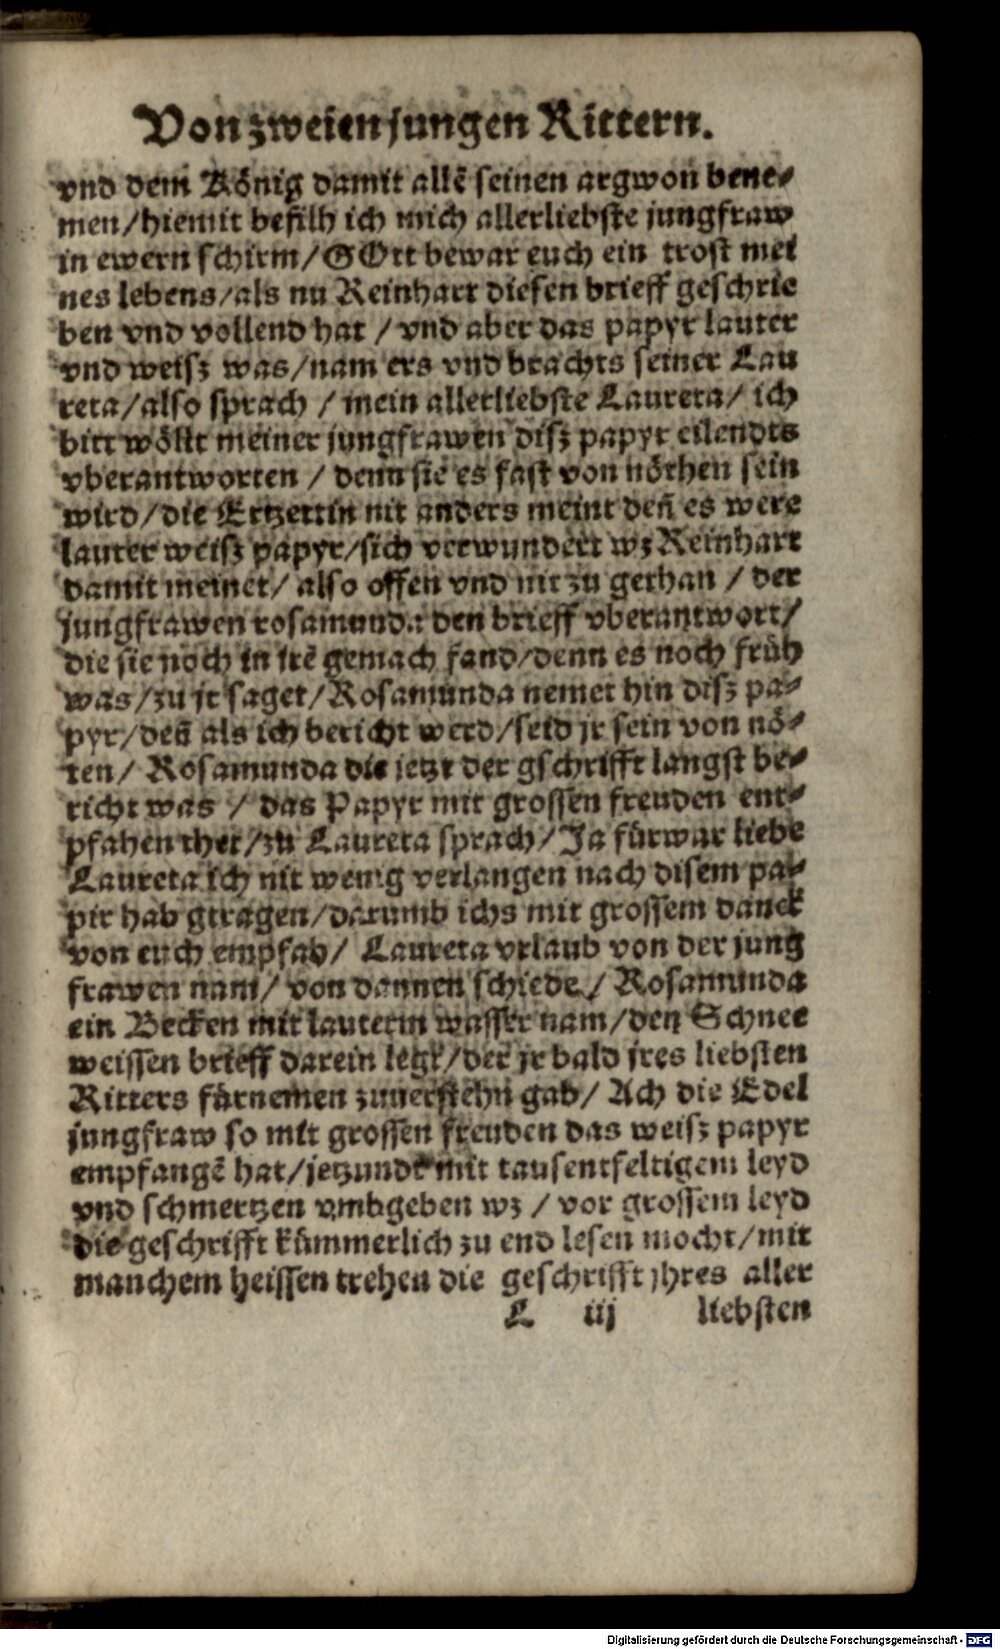 Von zweien jungen Rittern.
vnd dem König damit allē seinen argwon bene-
men/hiemit befilh ich mich allerliebste jungfraw
in ewern schirm/GOtt bewar euch ein trost mei
nes lebens/als nu Reinhart diesen brieff geschrie
ben vnd vollend hat / vnd aber das papyr lauter
vnd weisz was/nam ers vnd brachts seiner Lau
reta/also sprach / mein allerliebste Laureta/ ich
bitt wöllt meiner jungfrawen disz papyr eilendts
vberantworten / denn sie es fast von nöthen sein
wird/die Ertzettin nit anders meint deñ es were
lauter weisz papyr/sich verwundert wz Reinhart
damit meinet/ also offen vnd nit zu gethan / der
jungfrawen rosamunda den brieff vberantwort/
die sie noch in irē gemach fand/denn es noch früh
was/zu jr saget/Rosamunda nemet hin disz pa-
pyr/deñ als ich bericht werd/seid jr sein von nö-
ten/ Rosamunda die jetzt der gschrifft langst be-
richt was / das Papyr mit grossen freuden ent-
pfahen thet/zu Laureta sprach/Ja fürwar liebe
Laureta ich nit wenig verlangen nach disem pa-
pir hab gtragen/darumb ichs mit grossem danck
von euch empfah/ Laureta vrlaub von der jung
frawen nam/ von dannen schiede/ Rosamunda
ein Becken mit lauterm wasser nam/den Schnee
weissen brieff darein legt/der jr bald jres liebsten
Ritters fürnemen zuuerstehn gab/ Ach die Edel
jungfraw so mit grossen freuden das weisz papyr
empfangē hat/jetzundt mit tausentfeltigem leyd
vnd schmertzen vmbgeben wz / vor grossem leyd
die geschrifft kümmerlich zu end lesen mocht/mit
manchem heissen trehen die geschrifft jhres aller
L iij liebsten
Digitalisierung gefördert durch die Deutsche Forschungsgemeinschaft - DFG